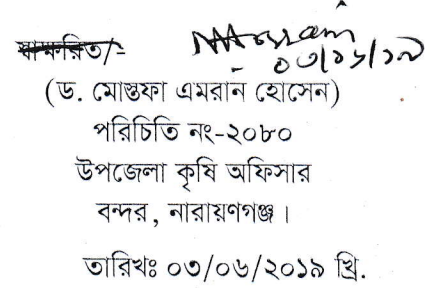 স্বাক্ষরিত/-
০৩/০৬/১৯
(ড. মোস্তফা এমরান হোসেন)
পরিচিতি নং-২০৮০
উপজেলা কৃষি অফিসার
বন্দর, নারায়ণগঞ্জ।
তারিখঃ ০৩/০৬/২০১৯ খ্রি.